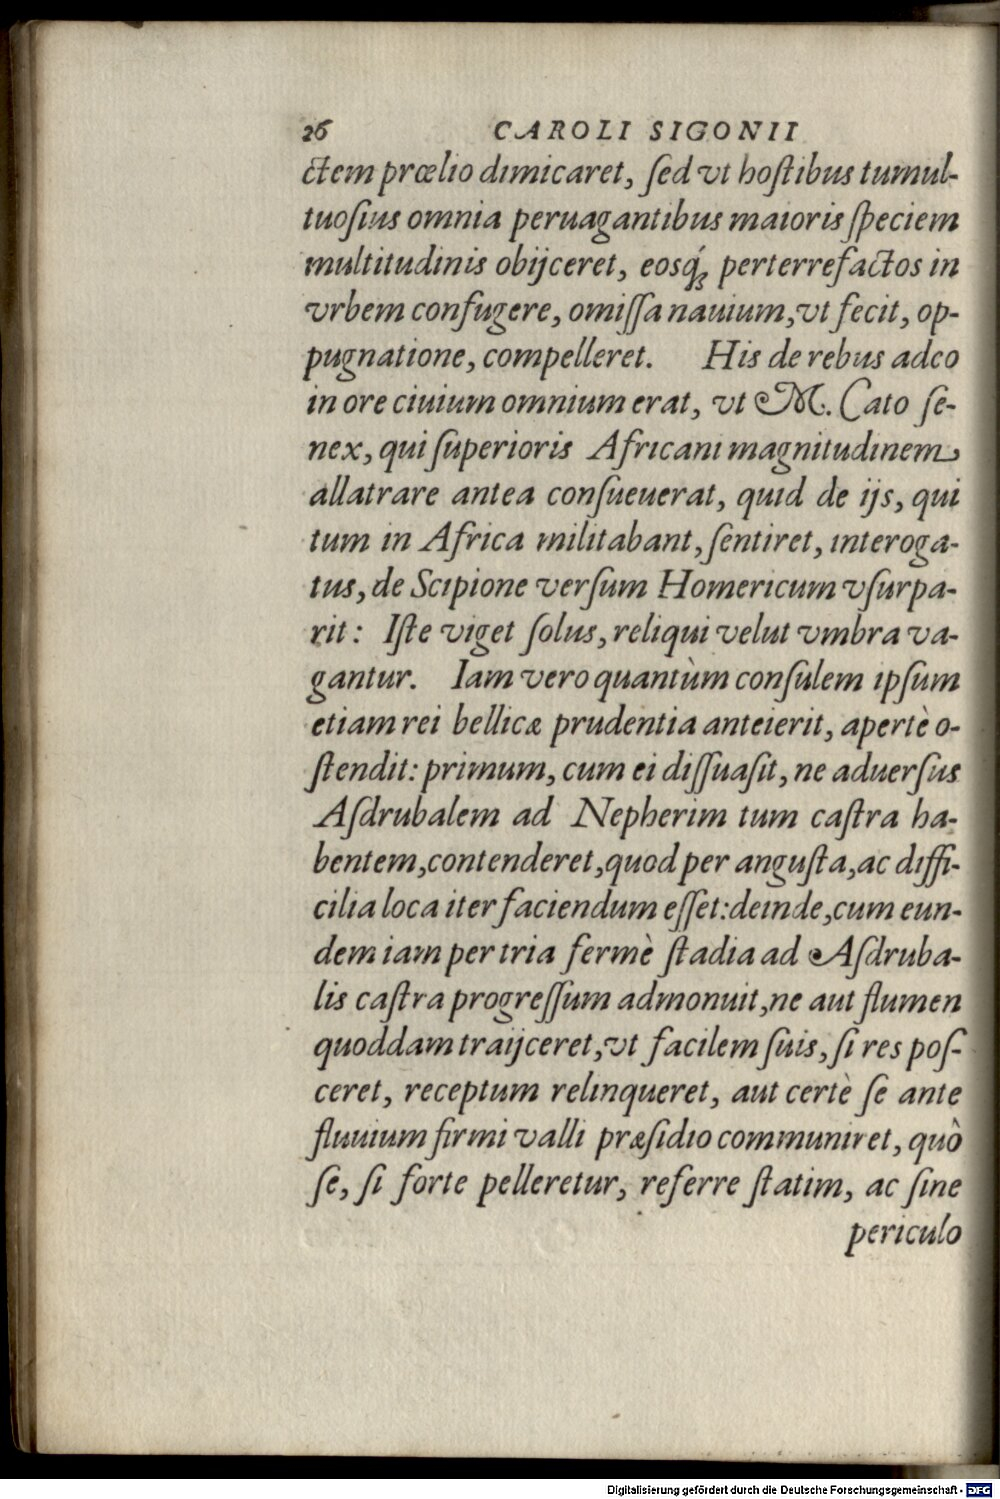 26 CAROLI SIGONII
ctem prœlio dimicaret, ſed vt hoſtibus tumul-
tuoſius omnia peruagantibus maioris ſpeciem
multitudinis obijceret, eosq́; perterrefactos in
vrbem confugere, omiſſa nauium, vt fecit, op-
pugnatione, compelleret. His de rebus adeo
in ore ciuium omnium erat, vt M. Cato ſe-
nex, qui ſuperioris Africani magnitudinem
allatrare antea conſueuerat, quid de ijs, qui
tum in Africa militabant, ſentiret, interoga-
tus, de Scipione verſum Homericum vſurpa-
rit: Iſte viget ſolus, reliqui velut vmbra va-
gantur. Iam vero quantùm conſulem ipſum
etiam rei bellicæ prudentia anteierit, apertè o-
ſtendit: primum, cum ei diſſuaſit, ne aduerſus
Aſdrubalem ad Nepherim tum caſtra ha-
bentem, contenderet, quod per anguſta, ac diffi-
cilia loca iter faciendum eſſet: deinde, cum eun-
dem iam per tria fermè ſtadia ad Aſdruba-
lis caſtra progreſſum admonuit, ne aut flumen
quoddam traijceret, vt facilem ſuis, ſi res poſ-
ceret, receptum relinqueret, aut certè ſe ante
fluuium firmi valli præſidio communiret, quò
ſe, ſi forte pelleretur, referre ſtatim, ac ſine
periculo
Digitalisierung gefördert durch die Deutsche Forschungsgemeinschaft - DFG